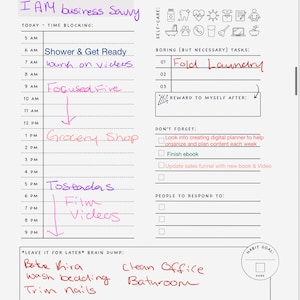 I AM business savvy
SELF-CARE:
TODAY - TIME BLOCKING:
5 AM
6 AM Shower & Get Ready
7 AM work on videos
8 AM
9 AM Focused Fire
10 AM
11 AM
12 PM Grocery Shop
1 PM
2 PM
3 PM
4 PM
5 PM
6 PM Film
7 PM Videos
8 PM
9 PM
BORING (BUT NECESSARY) TASKS:
01 Fold Laundry
02
03
REWARD TO MYSELF AFTER:
DON'T FORGET:
Look into creating digital planner to help
organize and plan content each week
Finish ebook
Update sales funnel with new book & Video
PEOPLE TO RESPOND TO:
*LEAVE IT FOR LATER* BRAIN DUMP:
wash bedding
Trim nails
Clean Office
Bathroom
HABIT GOAL: